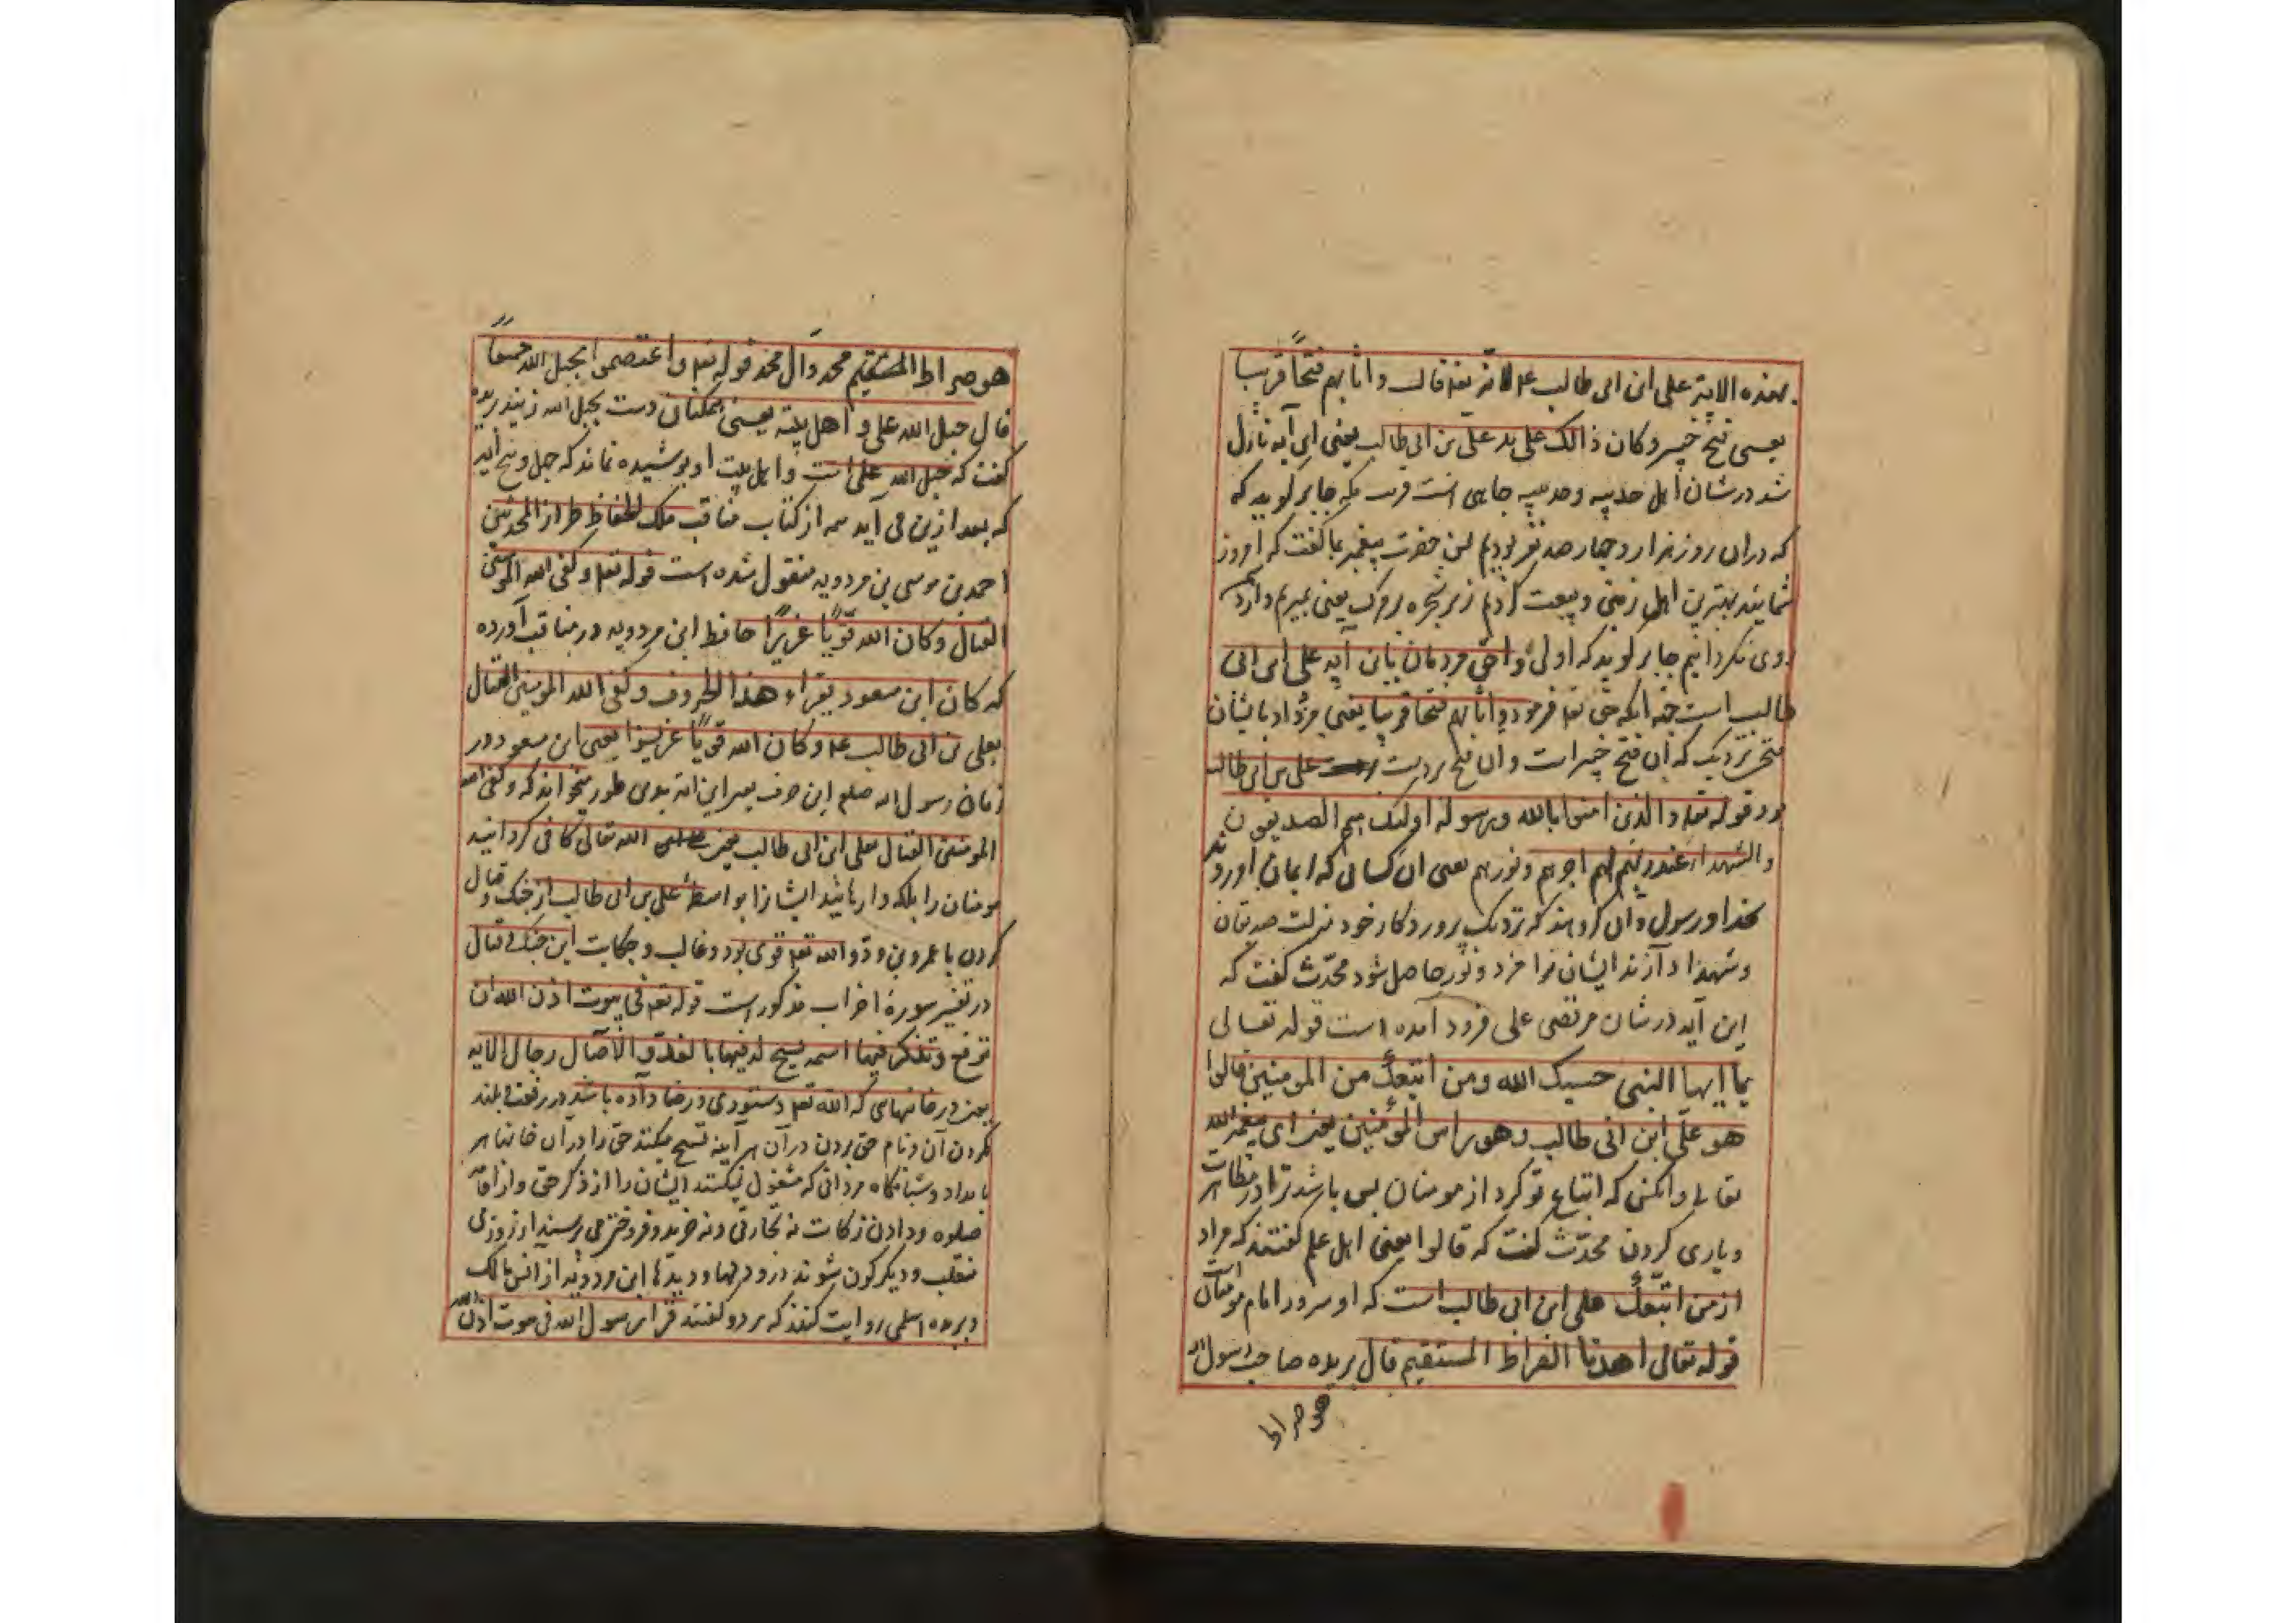 بهذه الایة علی ابن ابی طالب لانه تعه قال و اثابهم فتحًا قریبا
یعنی فتح خیبر و کان ذالک علی ید علی بن ابی طالب یعنی این آیه نازل
شد در شان اهل حدیبیه و حدیبیه جایی است قریب مکه جابر گوید که
که دران روز هزار و چهار صد نفر بودیم پس حضرت پیغمبر بما گفت که امروز
شمایند بهترین اهل زمین و بیعت کردیم زیر شجره بر مرگ یعنی بمیریم و از
روی نگردانیم جابر گوید که اولی و احق مردمان باین آیه علی ابن ابی
طالب است چنانکه حق تعه فرموده و اثابهم فتحا قریبا یعنی مزد داد بایشان
فتح نزدیک که آن فتح خیبر است و ان فتح بر دست علی بن ابی طالب
بود قوله تعه و الذین امنوا بالله و برسوله اولئک هم الصدیقون
و الشهداء عند ربهم لهم اجرهم و نورهم یعنی ان کسانی که ایمان آورده
بخدا و رسول و آن گروهند که نزدیک پروردگار خود منزلت صدیقان
و شهدا دارند ایشان را مزد و نور حاصل شود محدّث گفت که
این آیه در شان مرتضی علی فرود آمده است قوله تعالی
یا ایها النبی حسبک الله و من اتبعک من المومنین قالوا
هو علی ابن ابی طالب و هو راس المؤمنین یعنی ای پیغمبر الله
تعالی و انکس که اتباع تو کرد از مومنان بس باشد ترا در
و یاری کردن محدّث گفت که قالوا یعنی اهل علم گفتند که مراد
از من اتبعک علی ابن ابی طالب است که او سرور امام مومنان است
قوله تعالی اهدنا الصراط المستقیم قال بریده صاحب رسول الله
هو صراط
هو صراط المستقیم محمد و آل محمد قوله تعه و اعتصموا بحبل الله جمیعًا
قال حبل الله علی و اهل بیته یعنی همکنان دست بحبل الله زنید بریده
گفت که حبل الله علی است و اهل بیت او پوشیده نماند که چهل و پنج آیه
که بعد ازین می آید همه از کتاب مناقب ملک الحفاظ طراز المحدثین
احمد بن موسی بن مردویه منقول شده است قوله تعه و کفی الله المومنین
القتال و کان الله قویًا عزیزًا حافظ ابن مردویه در مناقب آورده
که کان ابن مسعود یقراء هذا الحروف و کفی الله المومنین القتال
بعلی بن ابی طالب و کان الله قویًا عزیزا یعنی ابن مسعود در
زمان رسول الله صلعم این حرف یعنی این آیه بدین طور میخواند که و کفی الله
المومنین القتال بعلی ابن ابی طالب یعنی الله تعالی کافی گردانید
مومنان را بلکه وارهانید ایشانرا بواسطهٔ علی بن ابی طالب از جنگ و قتال
کردن با عمرو بن ودّ و الله تعه قوی بود و غالب و حکایت این جنگ و قتال
در تفسیر سورهٔ احزاب مذکور است قوله تعه فی بیوت اذن الله ان
ترفع و تذکر فیها اسمه یسبح له فیها بالغدو و الآصال رجال الایه
یعنی در خانهایی که الله تعه دستوری و رضا داده باشد در رفعت و بلند
کردن آن و نام حق بردن در آن هر آینه تسبیح میکنند حق را در آن خانها هر
بامداد و شبانگاه مردانی که مشغول نیکنند ایشان را از ذکر حق و از اقامت
صلوه و دادن زکات نه تجارتی و نه خرید و فروختی می ترسند از روزی
منقلب و دیگرگون شوند درو دلها و دیدها ابن مردویه از انس مالک
و بریده اسلمی روایت کنند که هر دو گفتند قرا رسول الله فی بیوت اذن الله